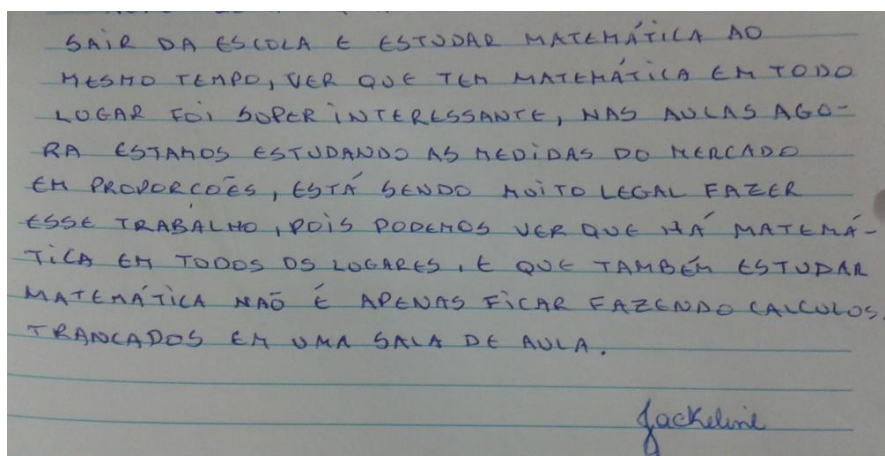 SAIR DA ESCOLA E ESTUDAR MATEMÁTICA AO
MESMO TEMPO, VER QUE TEM MATEMÁTICA EM TODO
LUGAR FOI SUPER INTERESSANTE, NAS AULAS AGO-
RA ESTAMOS ESTUDANDO AS MEDIDAS DO MERCADO
EM PROPORCÕES, ESTÁ SENDO MUITO LEGAL FAZER
ESSE TRABALHO, POIS PODEMOS VER QUE HÁ MATEMÁ-
TICA EM TODOS OS LUGARES, E QUE TAMBÉM ESTUDAR
MATEMÁTICA NÃO É APENAS FICAR FAZENDO CALCULOS,
TRANCADOS EM UMA SALA DE AULA.
Jackeline